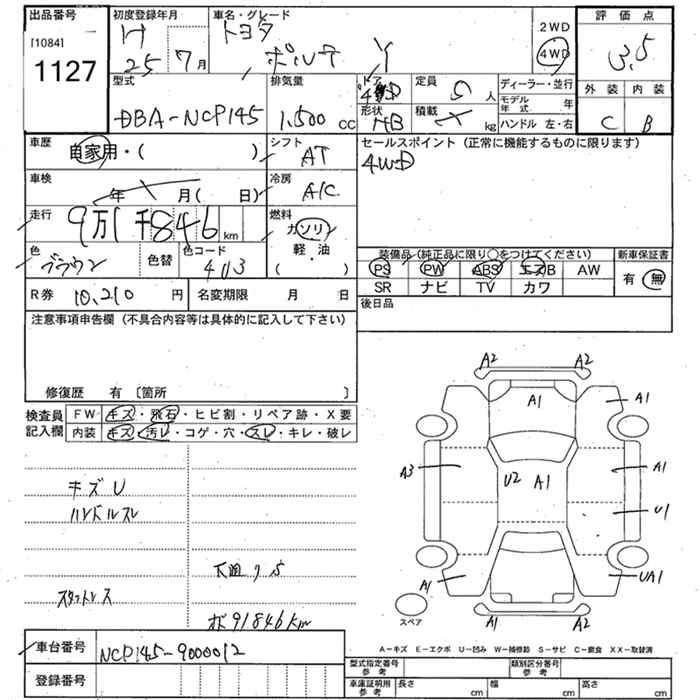 出品番号 初度登録年月 車名・グレード 評価点
[1084] H 25 年 7月 トヨタ 2WD
1127 ポルテ Y 4WD 3.5
型式 排気量 ドア 定員 ディーラー・並行 外装 内装
DBA-NCP145 1,500 cc 4 5 人 モデル年式 年 C B
形状 HB 積載 kg ハンドル 左・右
車歴 自家用・( ) シフト AT セールスポイント (正常に機能するものに限ります)
4WD
車検 年 月( 日) 冷房 A/C
走行 9万1千846km 燃料 ガソリン
軽・油
( )
色 ブラウン 色替 色コード 4U3
装備品(純正品に限り○をつけてください) 新車保証書
PS PW ABS エアB AW 有 無
SR ナビ TV カワ
R券 10,210 円 名変期限 月 日 後日品
注意事項申告欄 (不具合内容等は具体的に記入して下さい)
修復歴 有 〔箇所 〕
検査員記入欄 FW キズ・飛石・ヒビ割・リペア跡・X要
内装 キズ・汚レ・コゲ・穴・スレ・キレ・破レ
キズU
ハンドルスレ
スタットレス
メ 91846km
A2 A2
A1 A1
A3 U2 A1 A1
U1
A1 UA1
A1 A2
スペア
A-キズ E-エクボ U-凹み W-補修跡 S-サビ C-腐食 XX-取替済
車台番号 NCP145-9000012
登録番号
型式指定番号 参考 類別区分番号 参考
車庫証明用 参考 長さ cm 幅 cm 高さ cm